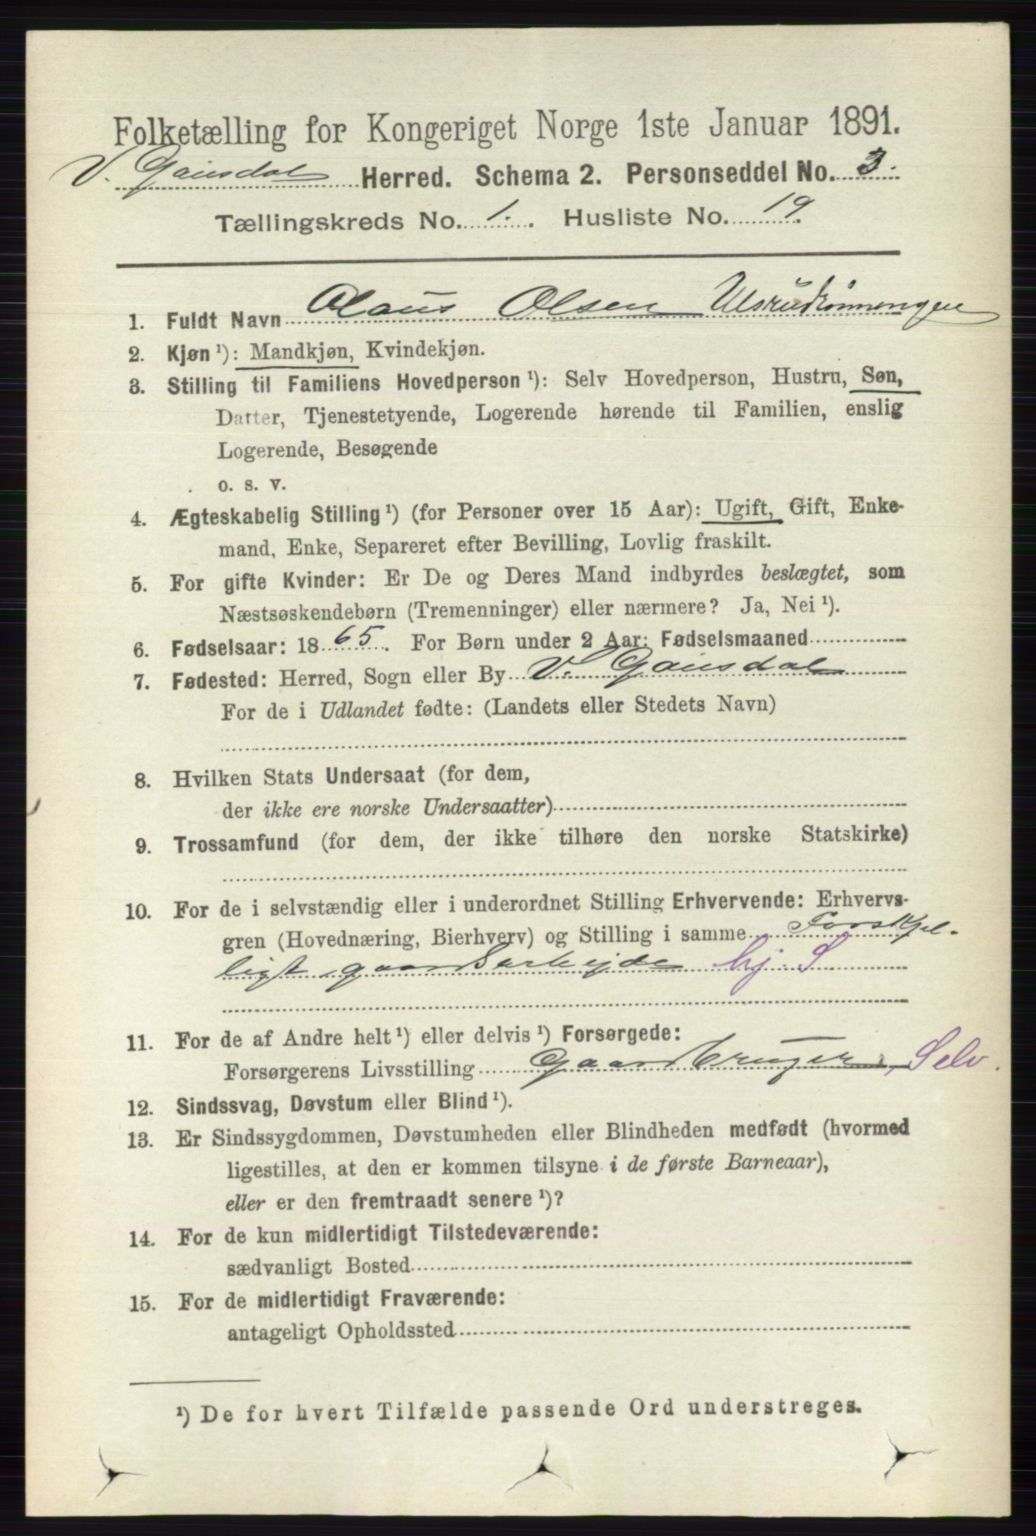 Folketælling for Kongeriget Norge 1ste Januar 1891.
V. Gausdal Herred. Schema 2. Personseddel No. 3.
Tællingskreds No. 1. Husliste No. 19.
1. Fuldt Navn Olaus Olsen
2. Kjøn ¹): Mandkjøn, Kvindekjøn.
3. Stilling til Familiens Hovedperson ¹): Selv Hovedperson, Hustru, Søn,
Datter, Tjenestetyende, Logerende hørende til Familien, enslig
Logerende, Besøgende
o. s. v.
4. Ægteskabelig Stilling ¹) (for Personer over 15 Aar): Ugift, Gift, Enke-
mand, Enke, Separeret efter Bevilling, Lovlig fraskilt.
5. For gifte Kvinder: Er De og Deres Mand indbyrdes beslægtet, som
Næstsøskendebørn (Tremenninger) eller nærmere? Ja, Nei ¹).
6. Fødselsaar: 1865. For Børn under 2 Aar: Fødselsmaaned
7. Fødested: Herred, Sogn eller By V. Gausdal
For de i Udlandet fødte: (Landets eller Stedets Navn)
8. Hvilken Stats Undersaat (for dem,
der ikke ere norske Undersaatter)
9. Trossamfund (for dem, der ikke tilhøre den norske Statskirke)
10. For de i selvstændig eller i underordnet Stilling Erhvervende: Erhvervs-
gren (Hovednæring, Bierhverv) og Stilling i samme Forskjel-
ligt gaardsarbejde hj. S
11. For de af Andre helt ¹) eller delvis ¹) Forsørgede:
Forsørgerens Livsstilling Gaardbruger, Selv.
12. Sindssvag, Døvstum eller Blind ¹).
13. Er Sindssygdommen, Døvstumheden eller Blindheden medfødt (hvormed
ligestilles, at den er kommen tilsyne i de første Barneaar),
eller er den fremtraadt senere ¹)?
14. For de kun midlertidigt Tilstedeværende:
sædvanligt Bosted
15. For de midlertidigt Fraværende:
antageligt Opholdssted
¹) De for hvert Tilfælde passende Ord understreges.